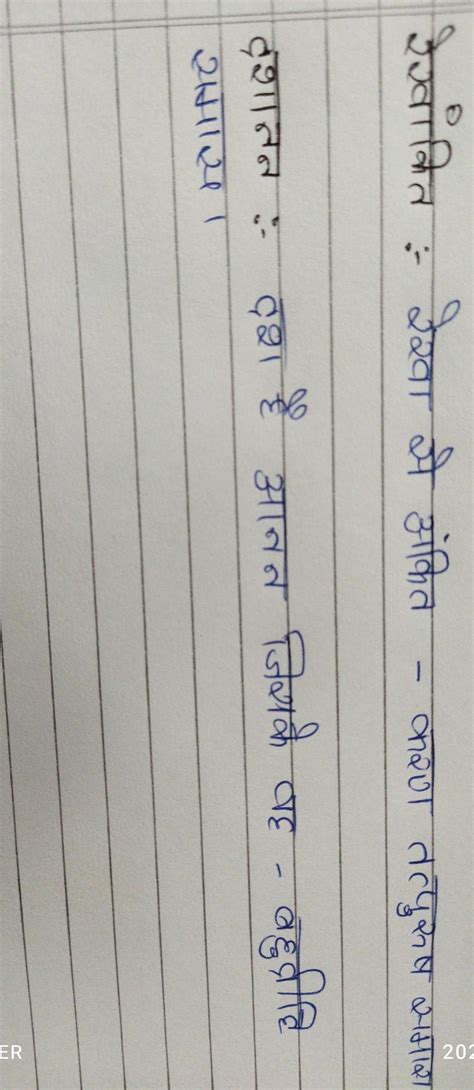 रेखांकित :- रेखा से अंकित - करण तत्पुरूष समास
दशानन :- दश है आनन जिसके वह - बहुव्रीहि
समास।